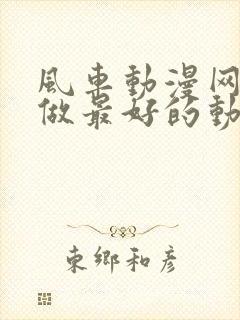 風車動漫网
做最好的動
東鄉和彥